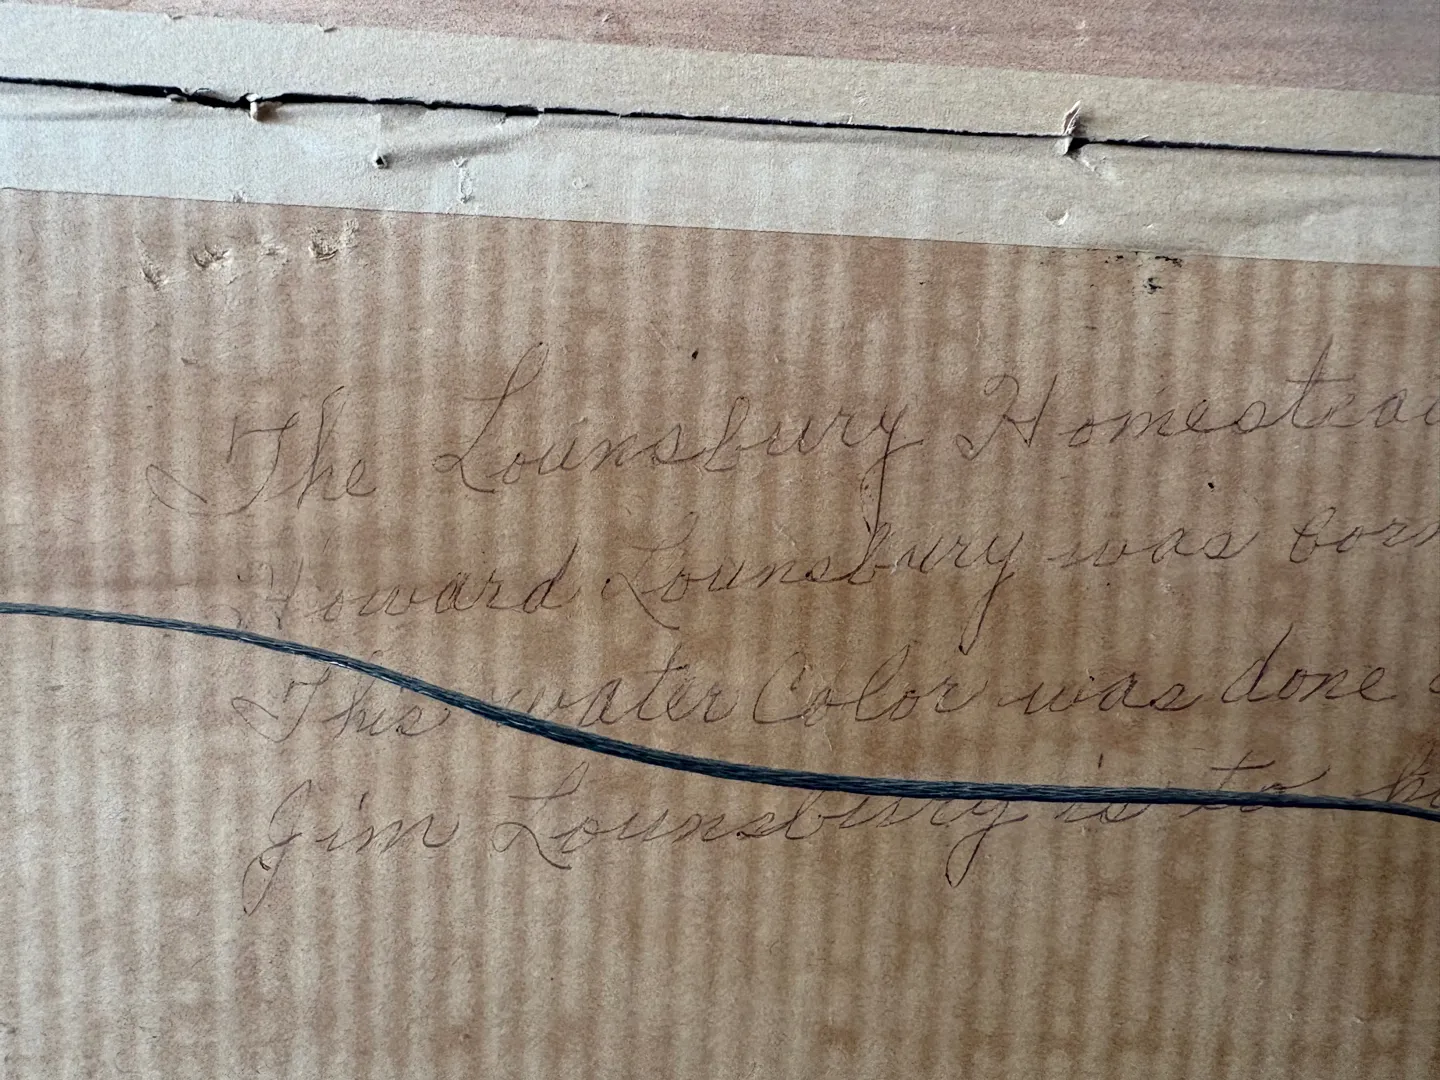 The Lounsbury Homestea
Howard Lounsbury was born
This water Color was done
Jim Lounsbury is to